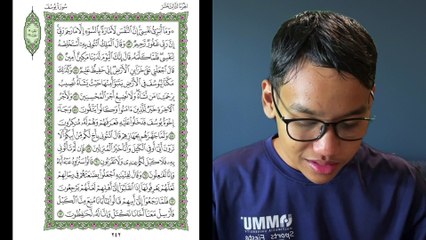 سُورَةُ يُوسُفَ
الجُزْءُ الثَّالِثَ عَشَرَ
۞ وَمَآ أُبَرِّئُ نَفْسِىٓ ۚ إِنَّ ٱلنَّفْسَ لَأَمَّارَةٌۢ بِٱلسُّوٓءِ إِلَّا مَا رَحِمَ رَبِّىٓ ۚ
إِنَّ رَبِّى غَفُورٌ رَّحِيمٌ ٥٣ وَقَالَ ٱلْمَلِكُ ٱئْتُونِى بِهِۦٓ أَسْتَخْلِصْهُ
لِنَفْسِى ۖ فَلَمَّا كَلَّمَهُۥ قَالَ إِنَّكَ ٱلْيَوْمَ لَدَيْنَا مَكِينٌ أَمِينٌ ٥٤
قَالَ ٱجْعَلْنِى عَلَىٰ خَزَآئِنِ ٱلْأَرْضِ ۖ إِنِّى حَفِيظٌ عَلِيمٌ ٥٥ وَكَذَٰلِكَ
مَكَّنَّا لِيُوسُفَ فِى ٱلْأَرْضِ يَتَبَوَّأُ مِنْهَا حَيْثُ يَشَآءُ ۚ نُصِيبُ
بِرَحْمَتِنَا مَن نَّشَآءُ ۖ وَلَا نُضِيعُ أَجْرَ ٱلْمُحْسِنِينَ ٥٦ وَلَأَجْرُ
ٱلْـَٔاخِرَةِ خَيْرٌ لِّلَّذِينَ ءَامَنُوا۟ وَكَانُوا۟ يَتَّقُونَ ٥٧ وَجَآءَ
إِخْوَةُ يُوسُفَ فَدَخَلُوا۟ عَلَيْهِ فَعَرَفَهُمْ وَهُمْ لَهُۥ مُنكِرُونَ ٥٨
وَلَمَّا جَهَّزَهُم بِجَهَازِهِمْ قَالَ ٱئْتُونِى بِأَخٍ لَّكُم مِّنْ أَبِيكُمْ ۚ أَلَا
تَرَوْنَ أَنِّىٓ أُوفِى ٱلْكَيْلَ وَأَنَا۠ خَيْرُ ٱلْمُنزِلِينَ ٥٩ فَإِن لَّمْ تَأْتُونِى
بِهِۦ فَلَا كَيْلَ لَكُمْ عِندِى وَلَا تَقْرَبُونِ ٦٠ قَالُوا۟ سَنُرَٰوِدُ عَنْهُ أَبَاهُ
وَإِنَّا لَفَٰعِلُونَ ٦١ وَقَالَ لِفِتْيَٰنِهِ ٱجْعَلُوا۟ بِضَٰعَتَهُمْ فِى رِحَالِهِمْ
لَعَلَّهُمْ يَعْرِفُونَهَآ إِذَا ٱنقَلَبُوٓا۟ إِلَىٰٓ أَهْلِهِمْ لَعَلَّهُمْ يَرْجِعُونَ ٦٢
فَلَمَّا رَجَعُوٓا۟ إِلَىٰٓ أَبِيهِمْ قَالُوا۟ يَٰٓأَبَانَا مُنِعَ مِنَّا ٱلْكَيْلُ
فَأَرْسِلْ مَعَنَآ أَخَانَا نَكْتَلْ وَإِنَّا لَهُۥ لَحَٰفِظُونَ ٦٣
٢٤٢
MMU
Sports
Fiesta